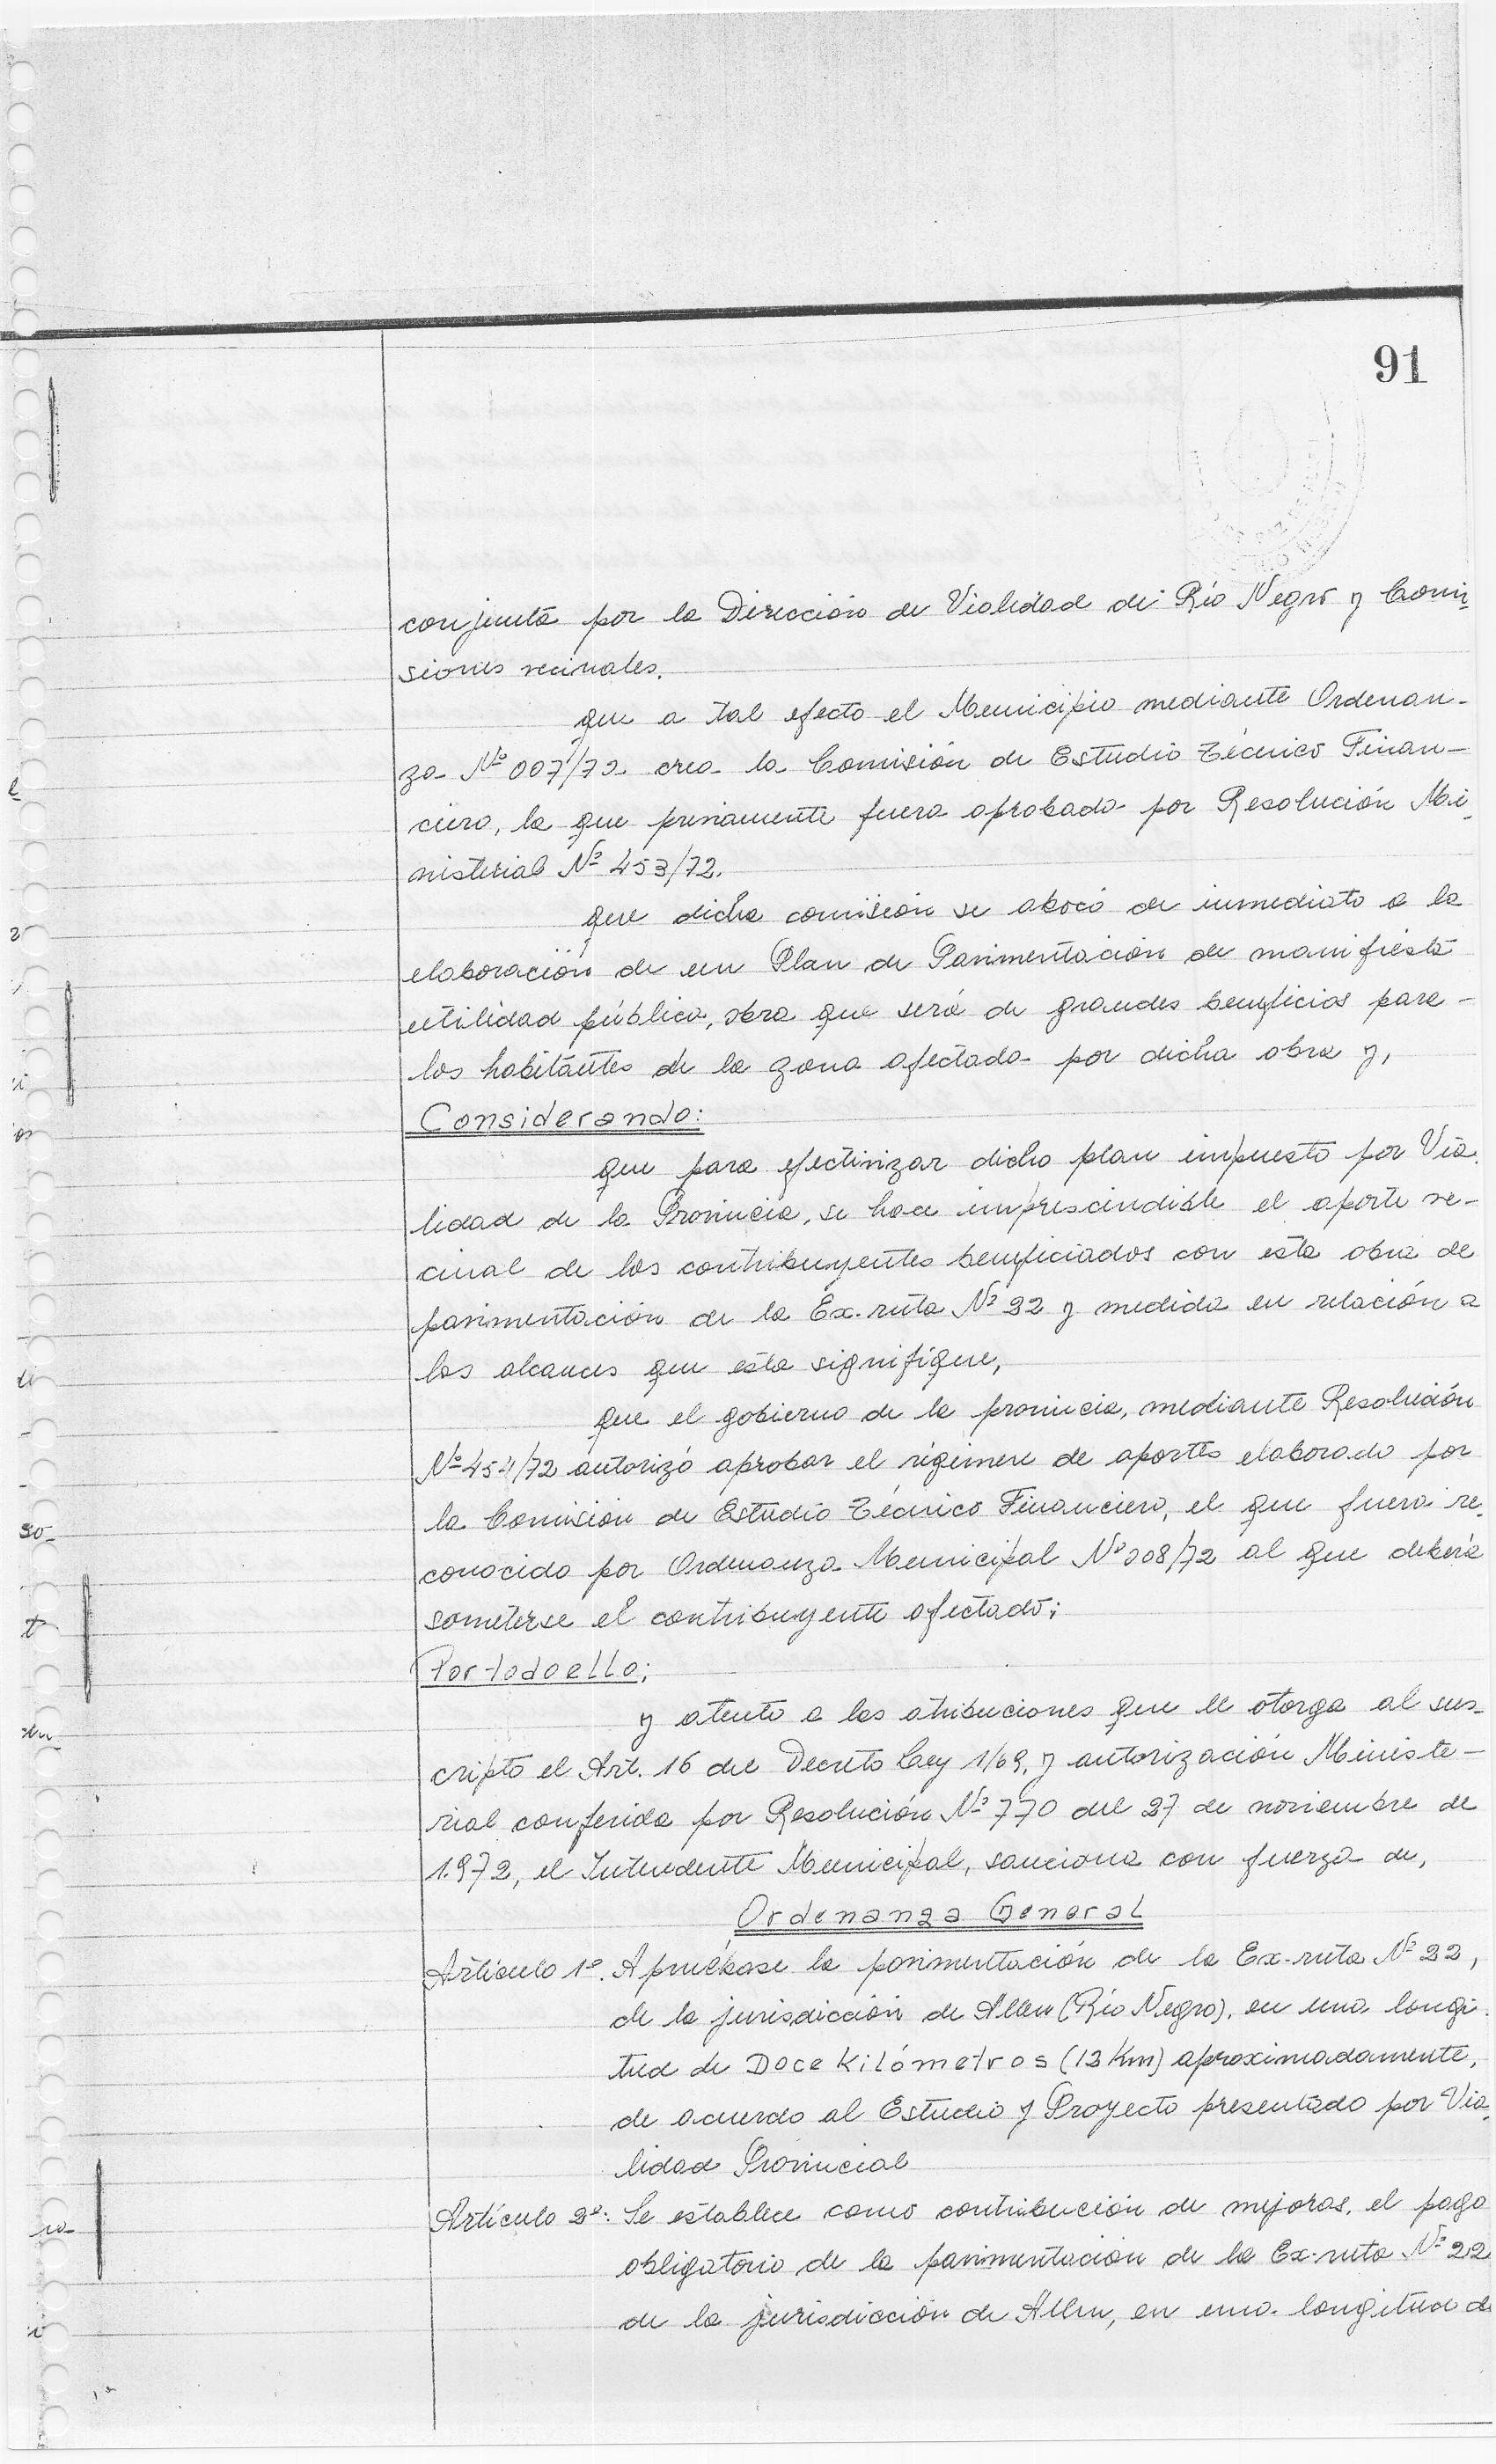 91
conjunta por la Dirección de Vialidad de Río Negro y Comi-
siones vecinales.
que a tal efecto el Municipio mediante Ordenan-
za Nº 007/72 crea la Comisión de Estudio Técnico Finan-
ciero, la que previamente fuera aprobada por Resolución Mi-
nisterial Nº 453/72.
que dicha comisión se abocó de inmediato a la
elaboración de un Plan de Pavimentación de manifiesta
utilidad pública, obra que será de grandes beneficios para -
los habitantes de la zona afectada por dicha obra y,
Considerando:
que para efectivizar dicho plan impuesto por Via-
lidad de la Provincia, se hace imprescindible el aporte ve-
cinal de los contribuyentes beneficiados con esta obra de
pavimentación de la Ex-ruta Nº 22 y medida en relación a
los alcances que esta signifique,
que el gobierno de la provincia, mediante Resolución
Nº 454/72 autorizó aprobar el régimen de aportes elaborado por
la Comisión de Estudio Técnico Financiero, el que fuera re-
conocido por Ordenanza Municipal Nº 008/72 al que deberá
someterse el contribuyente afectado;
Por todo ello;
y atento a las atribuciones que le otorga al sus-
cripto el Art. 16 del Decreto Ley 1/69, y autorización Ministe-
rial conferida por Resolución Nº 770 del 27 de noviembre de
1.972, el Intendente Municipal, sanciona con fuerza de,
Ordenanza General
Artículo 1º. Apruébase la pavimentación de la Ex-ruta Nº 22,
de la jurisdicción de Allen (Río Negro), en una longi-
tud de Doce Kilómetros (12 Km) aproximadamente,
de acuerdo al Estudio y Proyecto presentado por Via-
lidad Provincial
Artículo 2º: Se establece como contribución de mejoras, el pago
obligatorio de la pavimentación de la Ex-ruta Nº 22
de la jurisdicción de Allen, en una longitud de